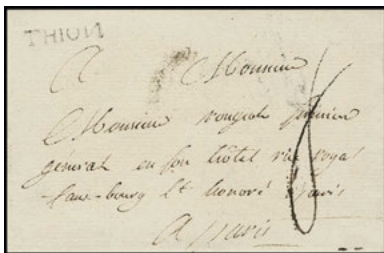 THION
A Monsieur
Monsieur fermier
général en son hôtel rue royal
faux-bourg St honoré à paris
A paris